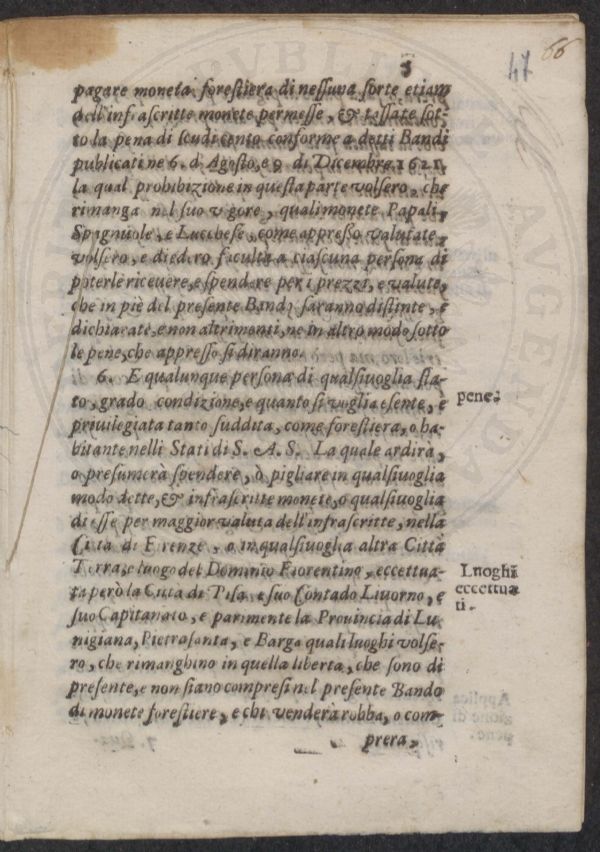 5
47
66
pagare moneta forestiera di nessuna sorte etiam
dell'infrascritte monete permesse, & tassate sot-
to la pena di scudi cento conforme a detti Bandi
publicati ne 6. d'Agosto, e 9 di Dicembre 1621.
la qual prohibizione in questa parte volsero, che
rimanga nel suo vigore, quali monete Papali,
Spagnuole, e Lucchese, come appresso valutate,
volsero, e diedero facultà a ciascuna persona di
poterle riceuere, e spendere per i prezzi, e valute,
che in piè del presente Bando saranno distinte, e
dichiarate, e non altrimenti, ne in altro modo sotto
le pene, che appresso si diranno.
6. E qualunque persona di qualsiuoglia sta-
to, grado condizione, e quanto si voglia esente, e
priuilegiata tanto suddita, come forestiera, o ha-
bitante nelli Stati di S. A. S. La quale ardirà,
o presumerà spendere, ò pigliare in qualsiuoglia
modo dette, & infrascritte monete, o qualsiuoglia
di esse per maggior valuta dell'infrascritte, nella
Città di Firenze, o in qualsiuoglia altra Città
Terra, e luogo del Dominio Fiorentino, eccettua-
ta però la Città di Pisa, e suo Contado Liuorno, e
suo Capitanato, e parimente la Prouincia di Lu-
nigiana, Pietrasanta, e Barga quali luoghi volse-
ro, che rimanghino in quella liberta, che sono di
presente, e non siano compresi nel presente Bando
di monete forestiere, e chi venderà robba, o com-
prera,
pene.
Luoghi
eccettua
ti.